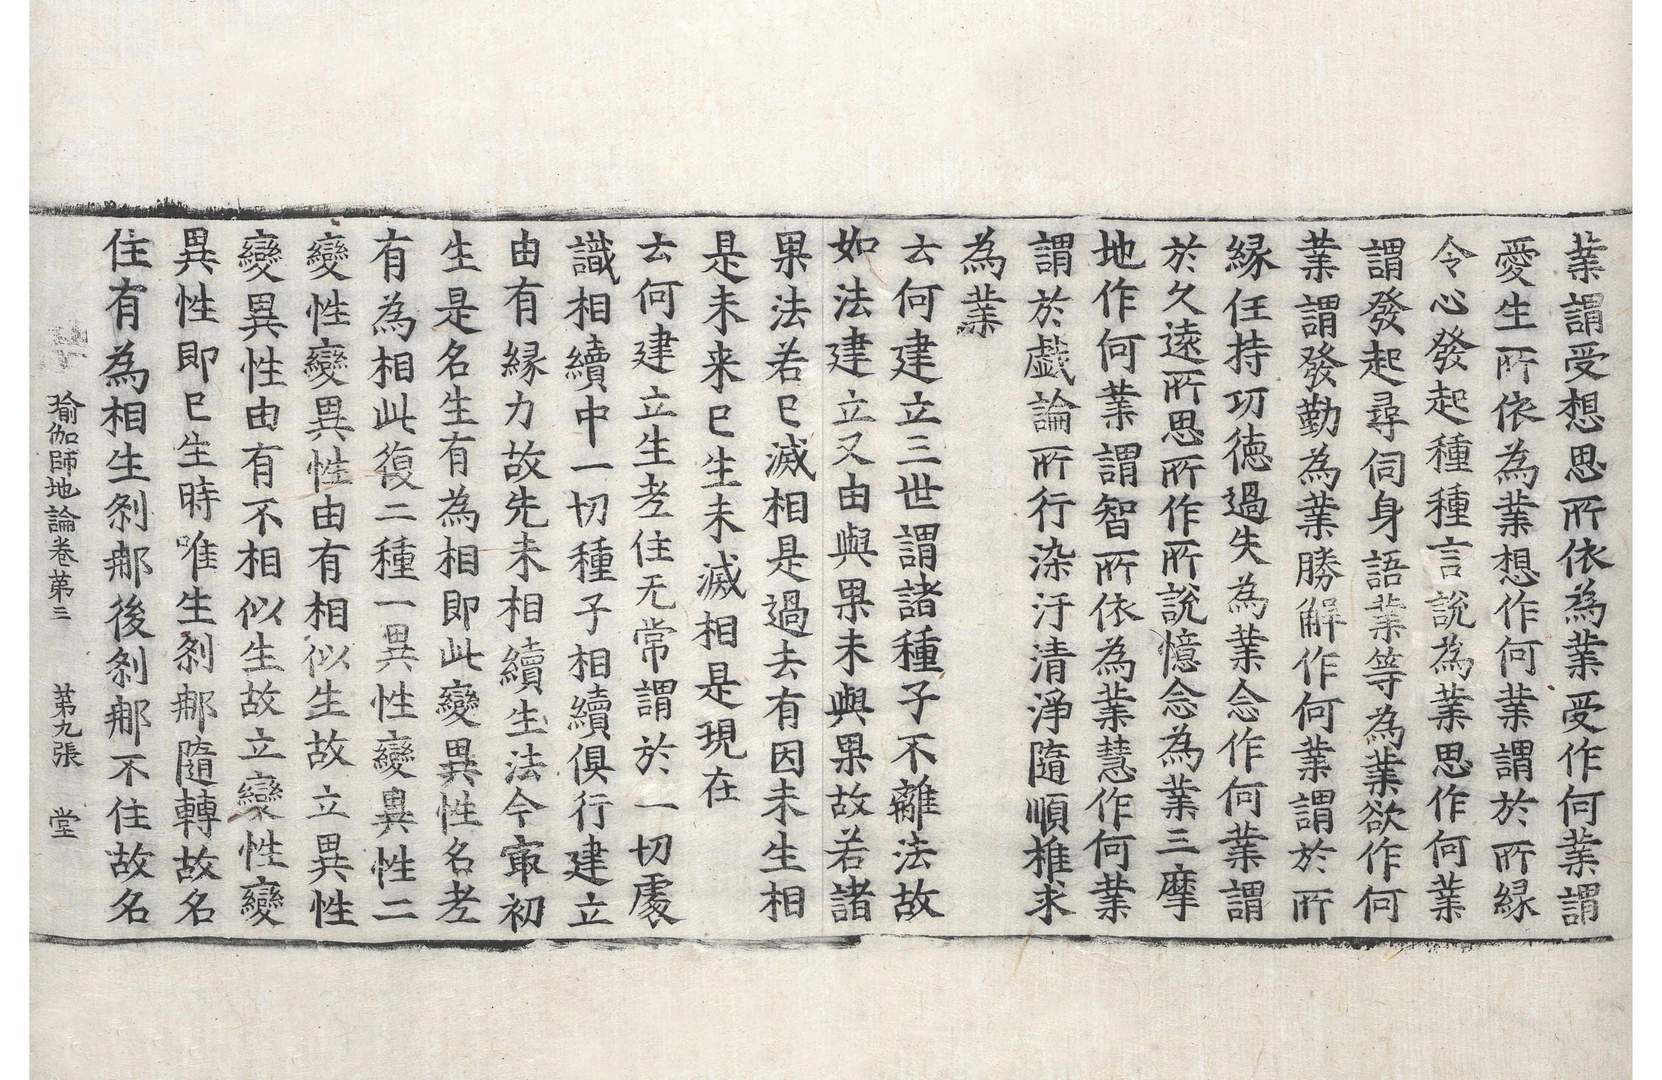 業謂受想思所依為業受作何業謂
愛生所依為業想作何業謂於所緣
令心發起種種言說為業思作何業
謂發起尋伺身語業等為業欲作何
業謂發勤為業勝解作何業謂於所
緣任持㓛德過失為業念作何業謂
於久遠所思所作所說憶念為業三摩
地作何業謂智所依為業慧作何業
謂於戱論所行染汙清淨隨順推求
為業
云何建立三世謂諸種子不離法故
如法建立又由與果未與果故若諸
果法若已滅相是過去有因未生相
是未来已生未滅相是現在
云何建立生老住无常謂於一切處
識相續中一切種子相續俱行建立
由有緣力故先未相續生法今㝡初
生是名生有為相即此變異性名老
有為相此復二種一異性變異性二
變性變異性由有相似生故立異性
變異性由有不相似生故立變性變
異性即已生時唯生剎那隨轉故名
住有為相生剎那後剎那不住故名
瑜伽師地論卷第三　第九張　堂